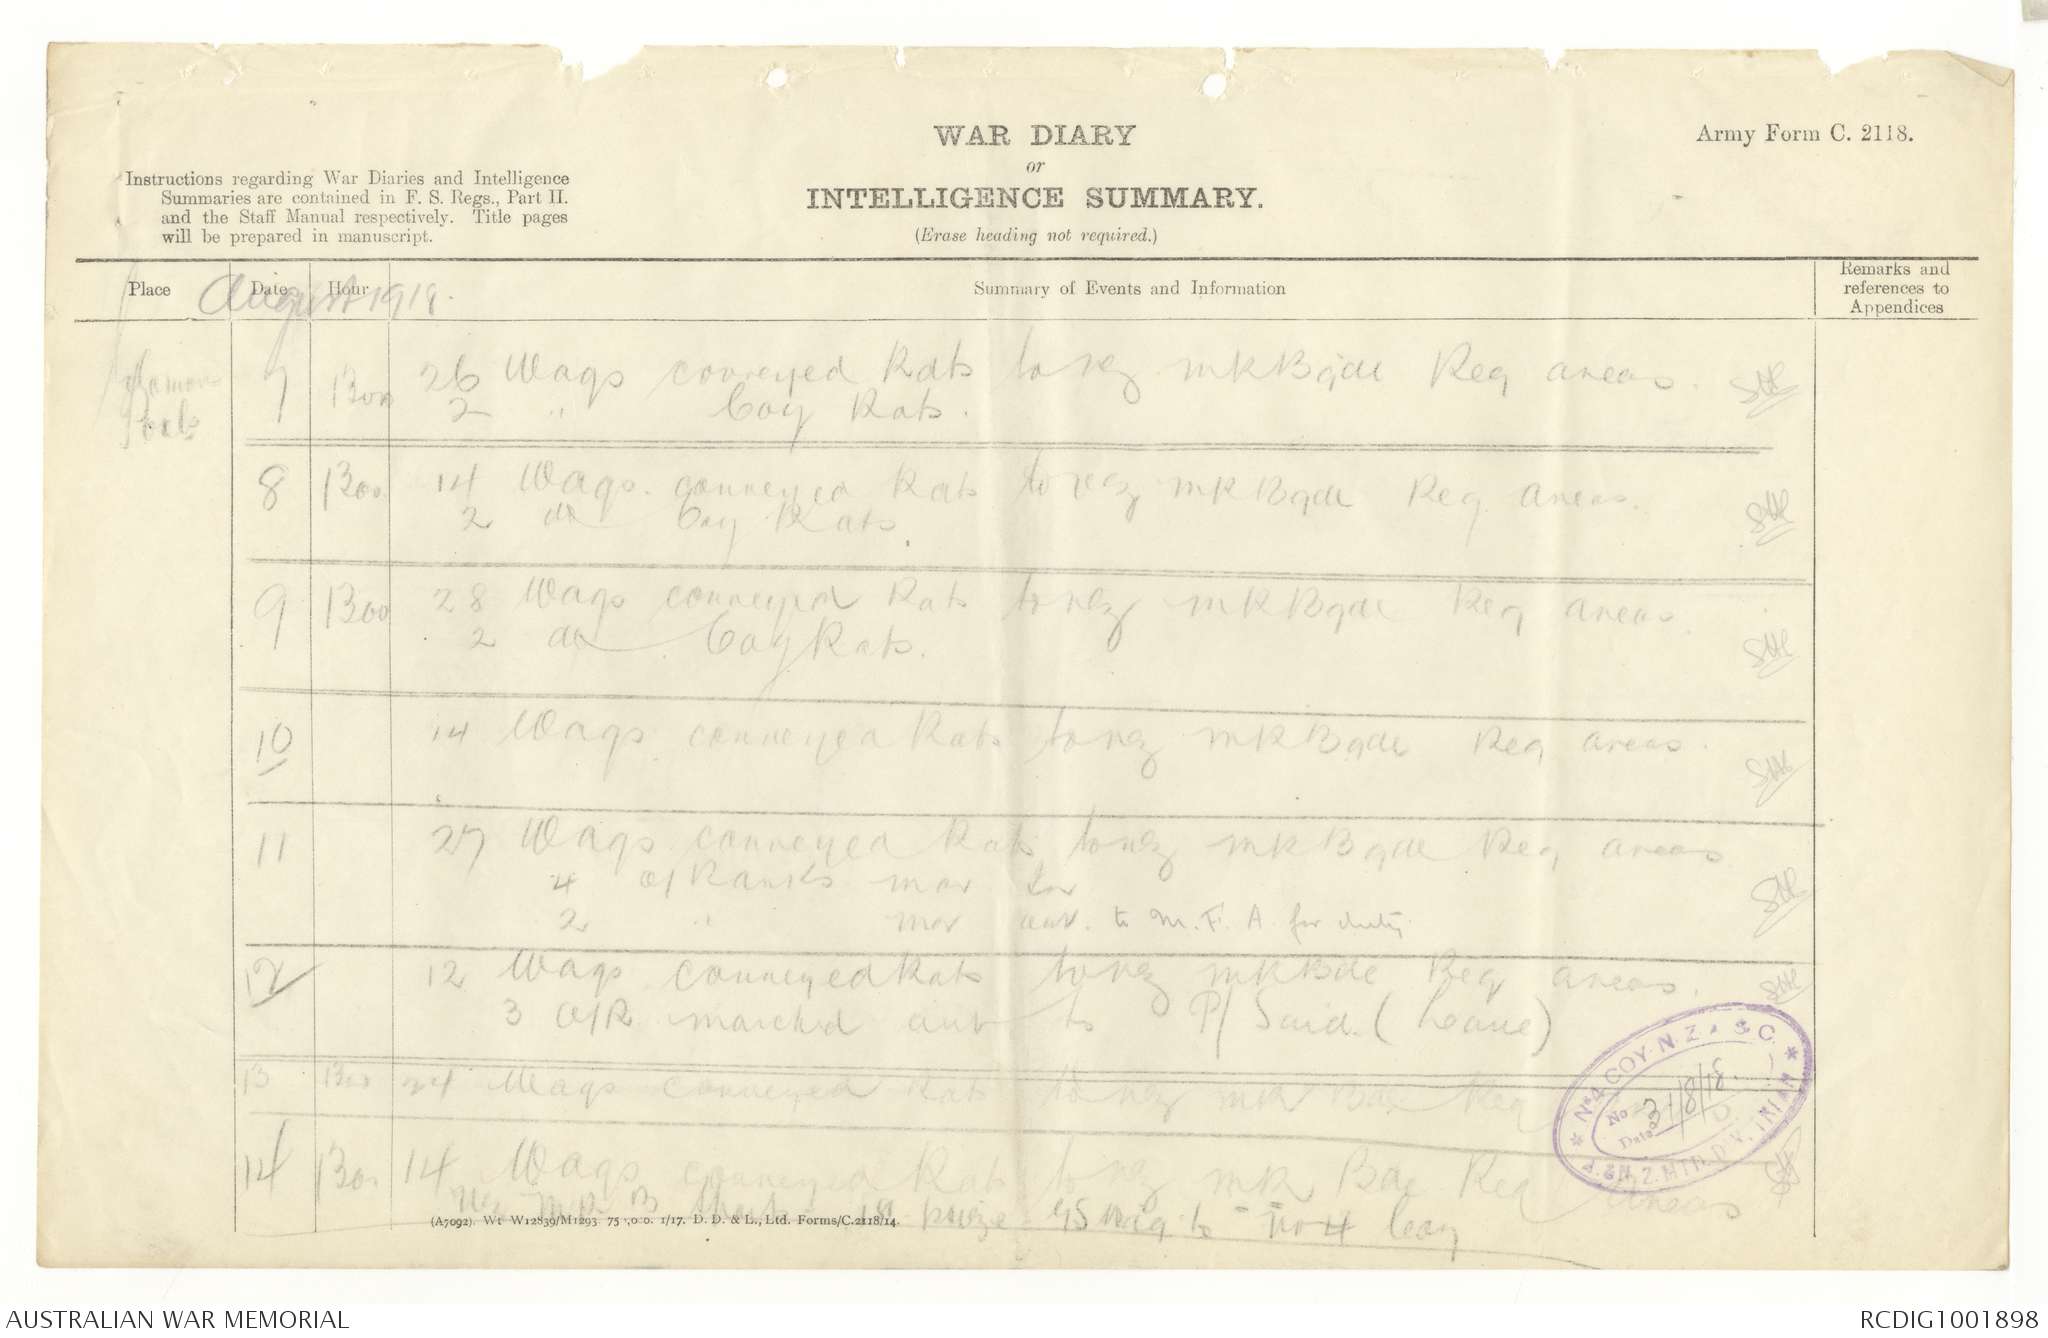 WAR DIARY
or
INTELLIGENCE SUMMARY.
(Erase heading not required.)
Army Form C. 2118.
Instructions regarding War Diaries and Intelligence
Summaries are contained in F. S. Regs., Part II.
and the Staff Manual respectively. Title pages
will be prepared in manuscript.
Place Date Hour Summary of Events and Information Remarks and references to Appendices
August 1918.
7 1300 26 Wags conveyed Rats to NZ MR Bgde Reg areas.
2 " Coy Rats.
8 1300 14 Wags. conveyed Rats to NZ MR Bgde Reg areas.
2 do Coy Rats.
9 1300 28 Wags conveyed Rats to NZ MR Bgde Reg areas.
2 do Coy Rats.
10 14 Wags conveyed Rats to NZ MR Bgde Reg areas.
11 27 Wags conveyed Rats to NZ MR Bgde Reg areas
4 o/Ranks mar in
2 " mar out. to M. F. A. for duty.
12 12 Wags conveyed Rats to NZ MR Bde Reg areas.
3 O/R marched out to P/Said. (Leave)
13 1300 24 Wags conveyed Rats to NZ MR Bde Reg
14 1300 14 Wags conveyed Rats to NZ MR Bde Reg Areas
NZ M R B 1st prize to No 4 Coy
No 4 COY. N.Z. S. C.
No
Date 31/8/18.
A. & N.Z. MTD. DIV. TRAIN
(A7092). Wt W12839/M1293 75 ,0 0. 1/17. D. D. & L., Ltd. Forms/C.2118/14.
AUSTRALIAN WAR MEMORIAL
RCDIG1001898